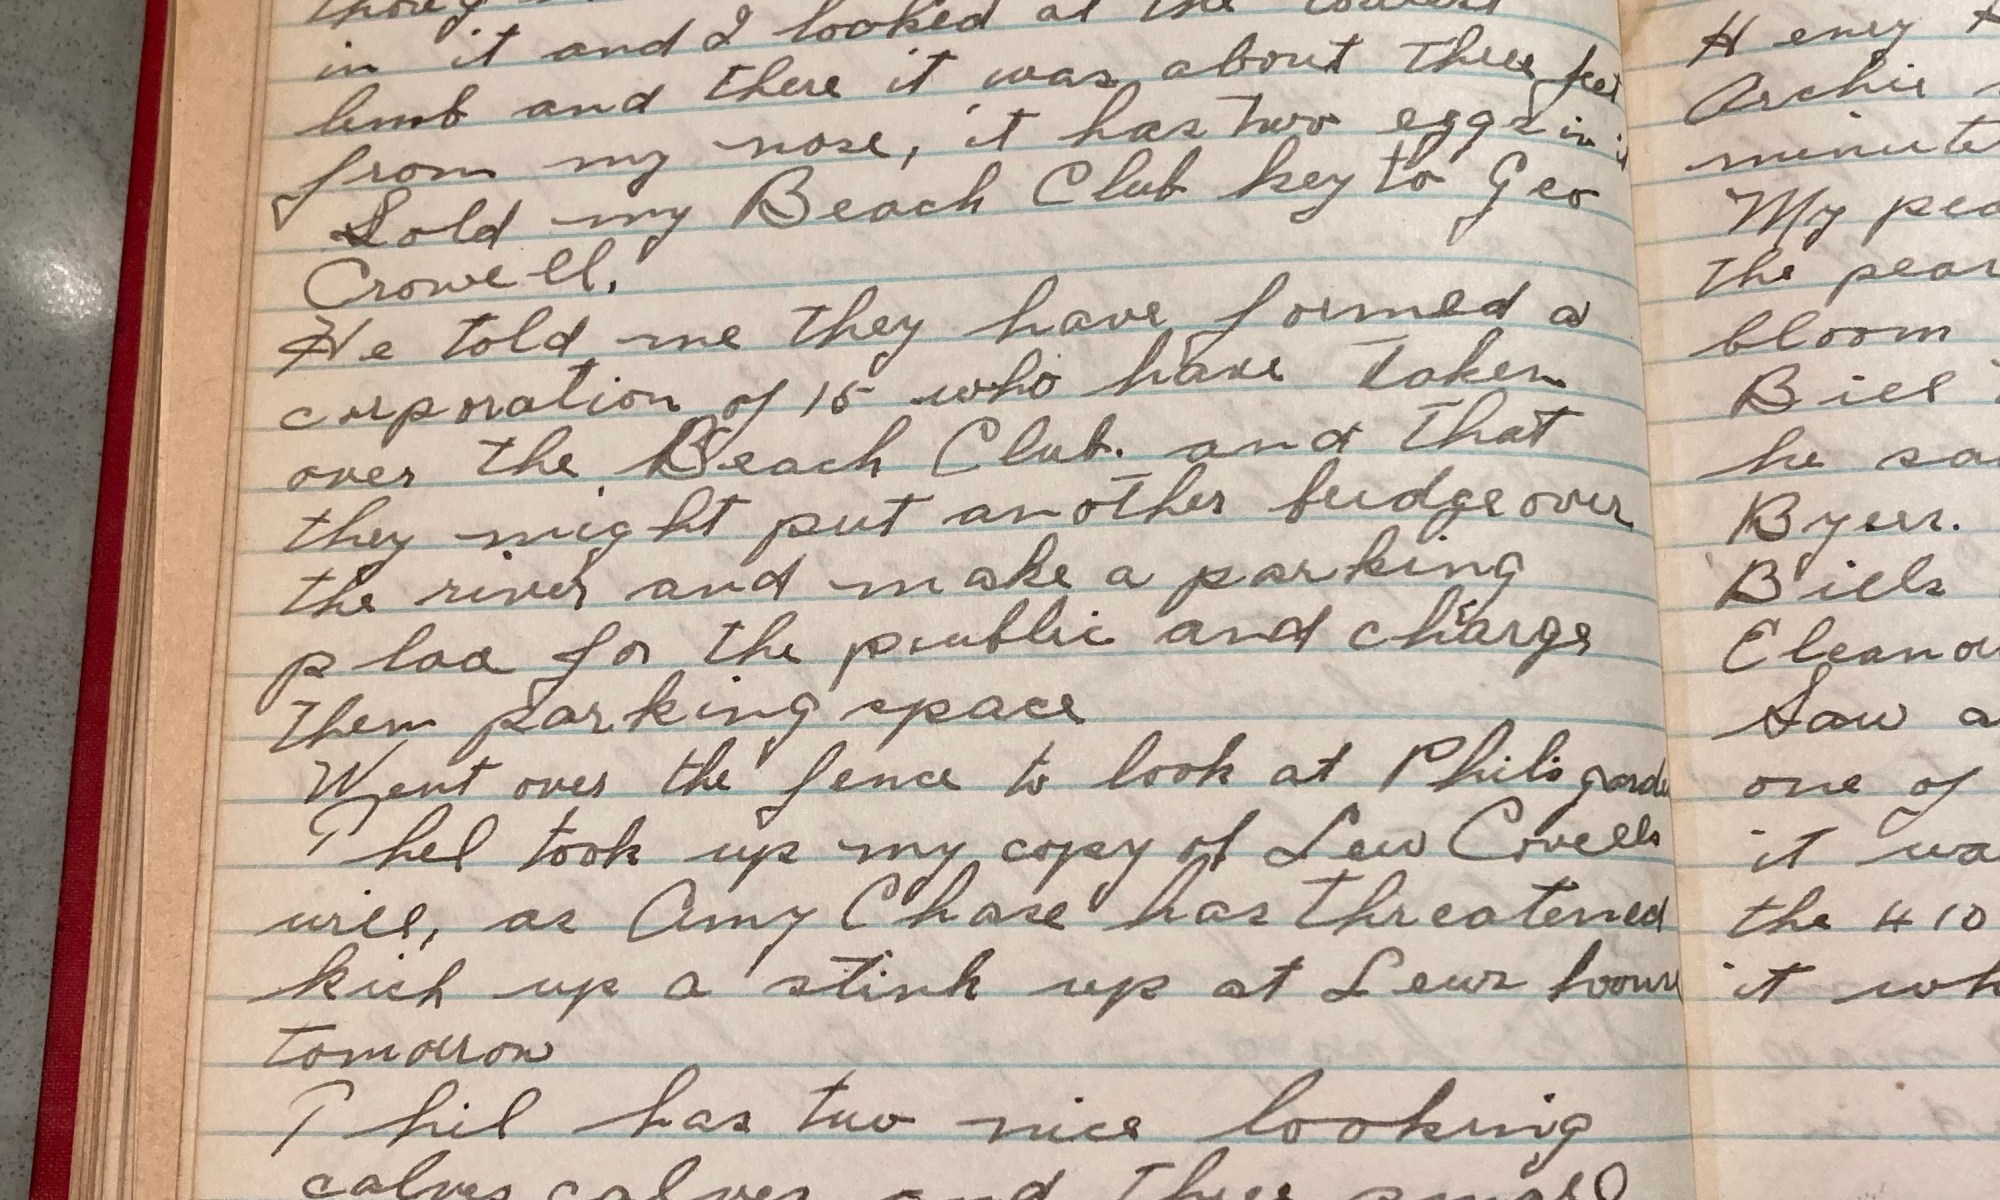 in it and I looked at the lowest
limb and there it was about three feet
from my nose, it has two eggs in it
Sold my Beach Club key to Geo
Crowell.
He told me they have formed a
corporation of 15 who have taken
over the Beach Club. and that
they might put another bridge over
the river and make a parking
place for the public and charge
them parking space
Went over the fence to look at Phil's garden
Phil took up my copy of Lew Covells
will, as Amy Chase has threatened
kick up a stink up at Lews house
tomorrow
Phil has two nice looking
calves calves and three small
Heney
Archie
minute
My pea
the pear
bloom
Bill
he sa
Byer.
Bills
Eleanor
Saw a
one of
it wa
the 410
it wh